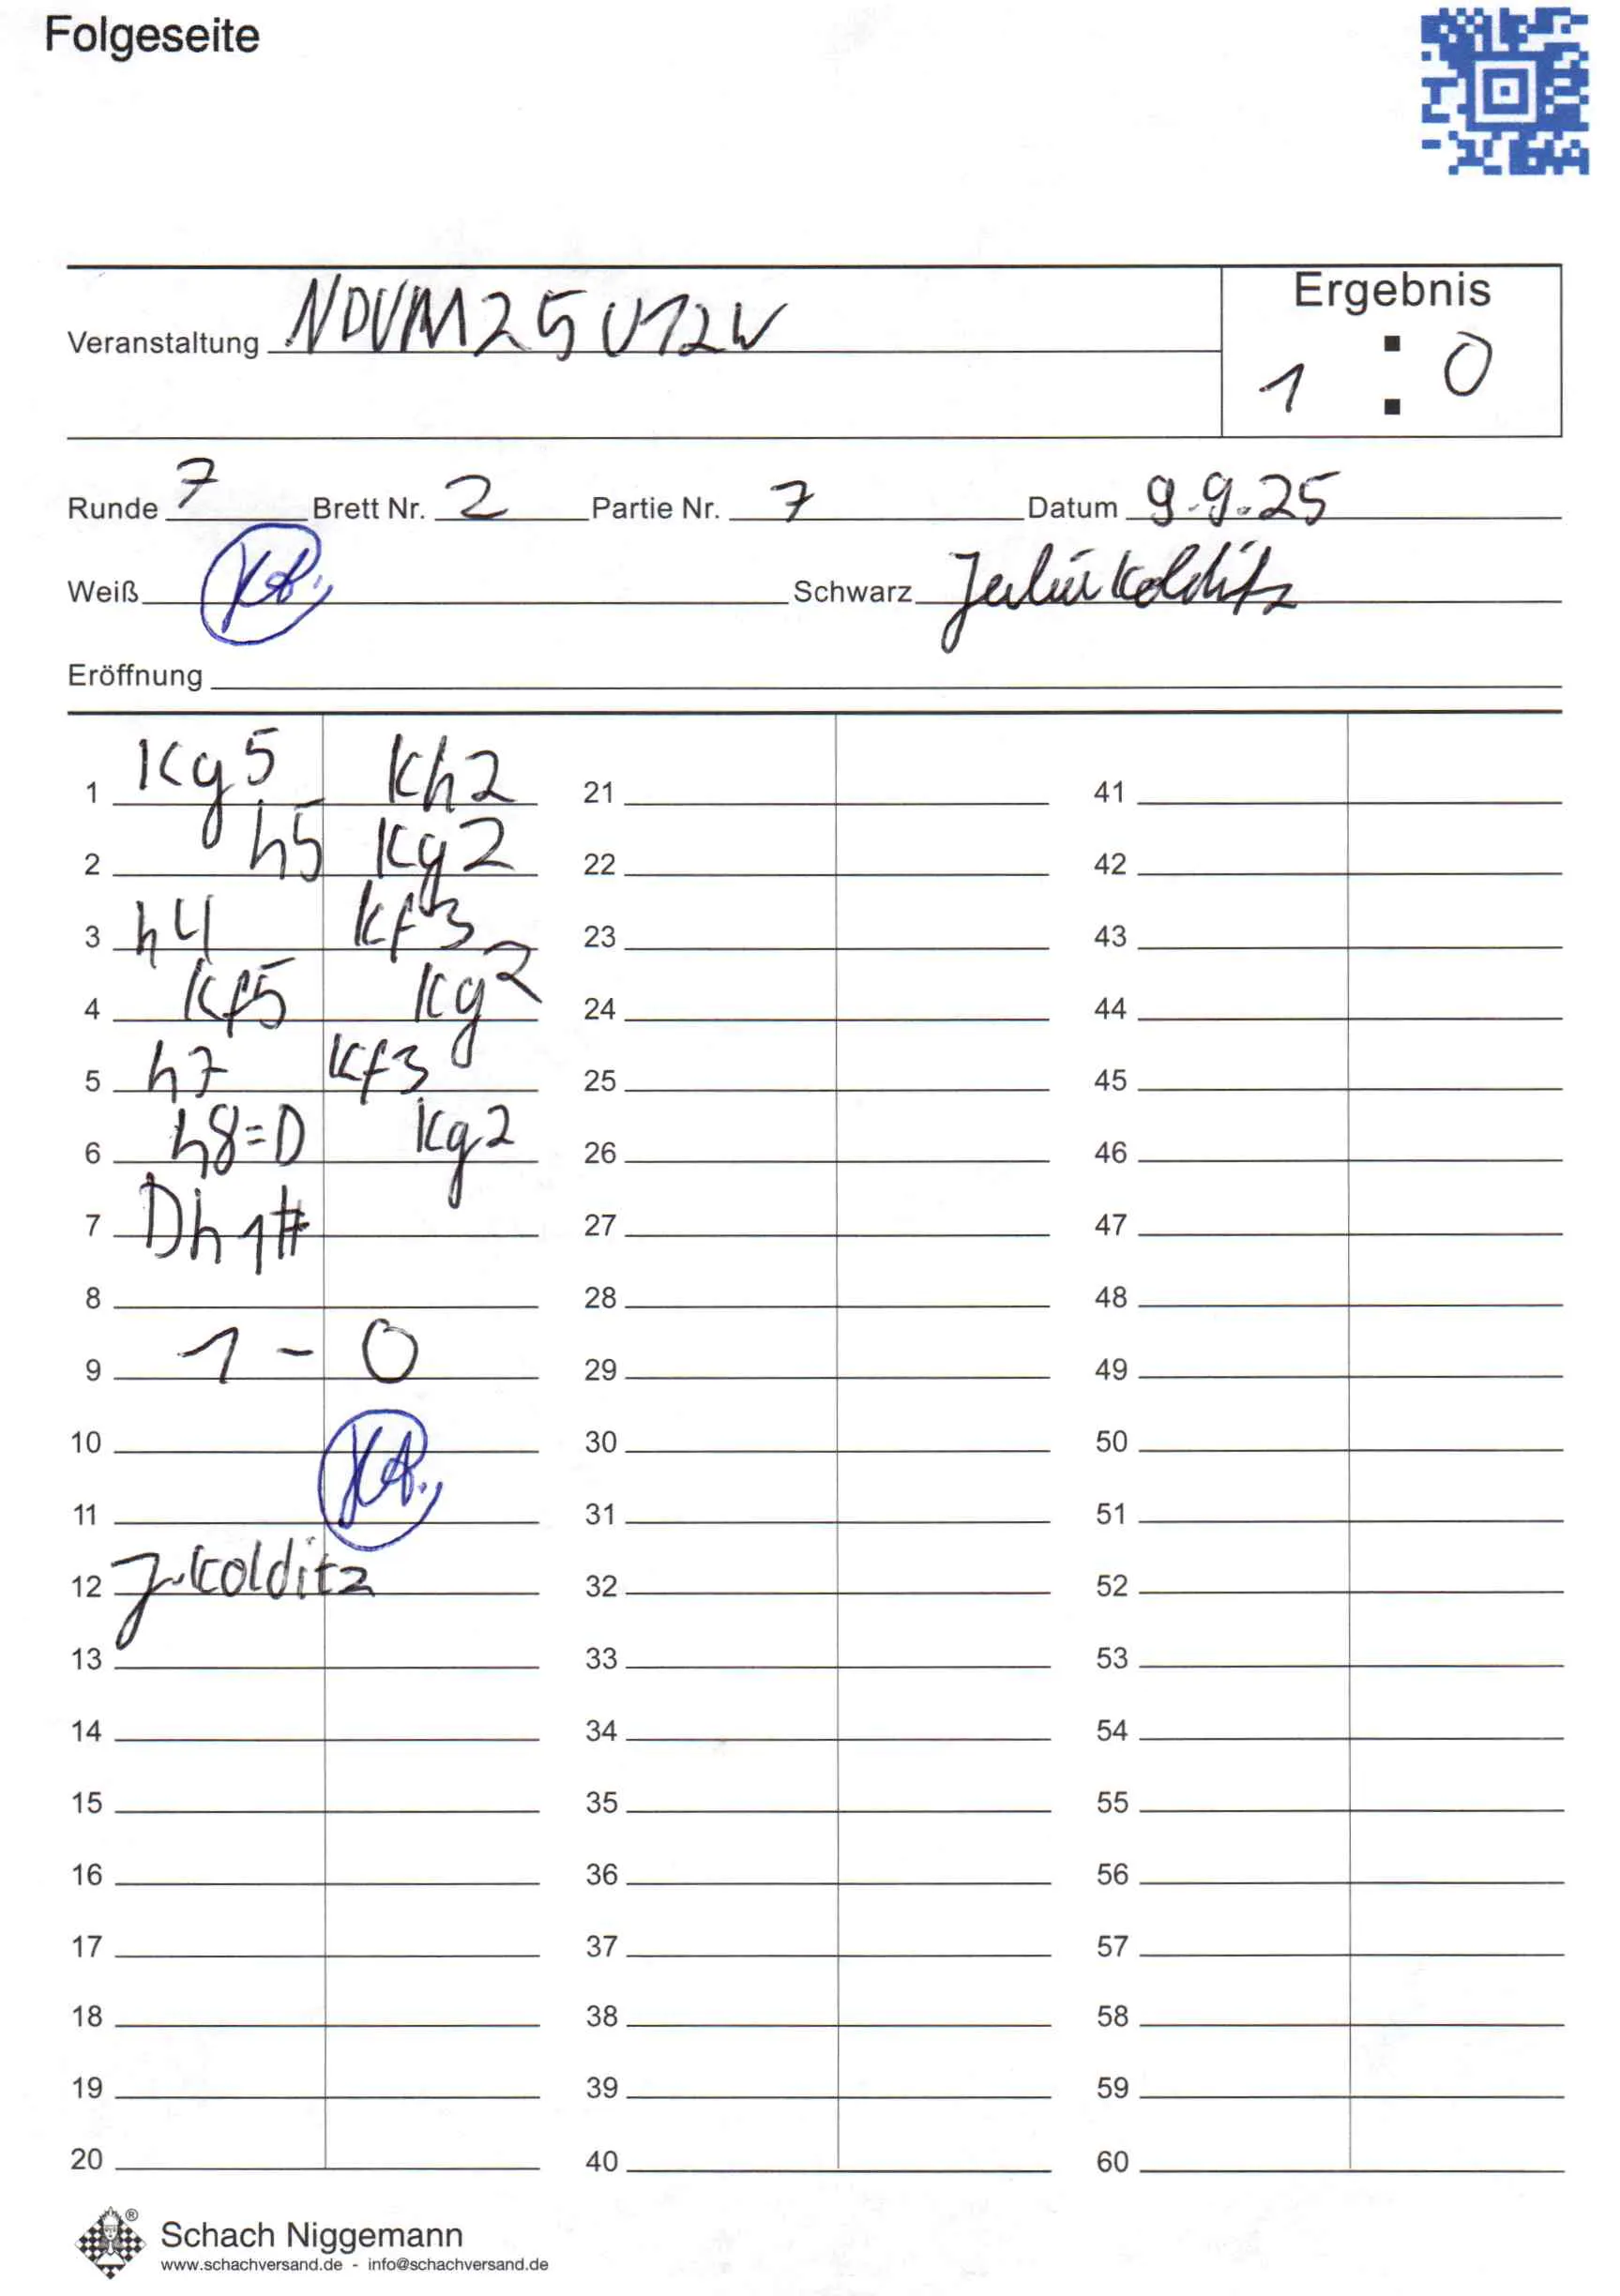 Folgeseite
Ergebnis
Veranstaltung NDVM25U12W
1 : 0
Runde 7 Brett Nr. 2 Partie Nr. 7 Datum 9.9.25
Weiß Schwarz Kolditz
Eröffnung
1 Kg5 Kh2 21 41
2 h5 Kg2 22 42
3 h4 Kf3 23 43
4 Kf5 Kg2 24 44
5 h7 Kf3 25 45
6 h8=D Kg2 26 46
7 Dh1# 27 47
8 28 48
9 1 - 0 29 49
10 30 50
11 31 51
12 J. Kolditz 32 52
13 33 53
14 34 54
15 35 55
16 36 56
17 37 57
18 38 58
19 39 59
20 40 60
®
Schach Niggemann
www.schachversand.de - info@schachversand.de